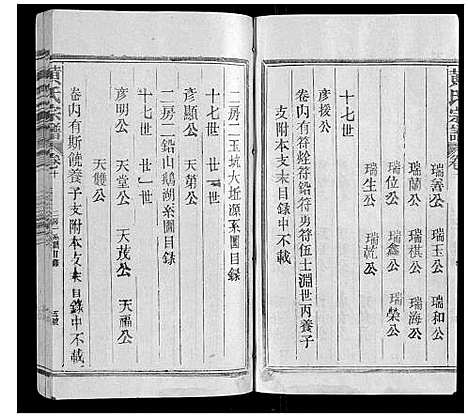 黄氏宗譜 卷十
瑞善公 瑞玉公 瑞和公
瑞蘭公 瑞祺公 瑞海公
瑞位公 瑞鑫公 瑞榮公
瑞生公 瑞乾公
十七世
彥援公
卷内有符烇符鉛符勇符伍士淵世丙養子
支附本支末目錄中不載
二房二玉坑大坵源系圖目錄
十七世 廿世
彥顯公 天第公
二房二鉛山鵝湖系圖目錄
十七世 廿一世
彥明公 天堂公 天茂公 天福公
天雙公
卷内有斯饒養子支附本支末目錄中不載
黄氏宗譜 卷十